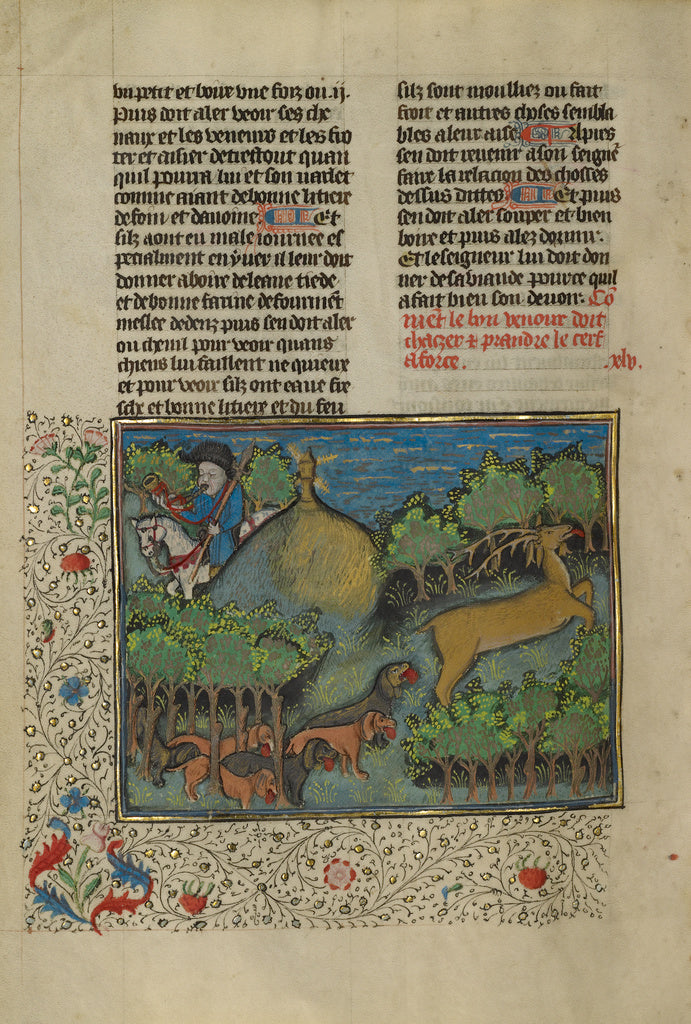 vn petit et boire vne foiz ou .ij.
Puis doit aler veoir ses che
uaux et les veneurs et les fro
ter et aisier de trestout quan
quil pourra lui et son uarlet
comme aiant de bonne litiere
de foin et dauoine Et
silz aont eu male iournee es
pecialment en yuer il leur doit
donner a boire de leaue tiede
et de bonne farine de fourmet
meslee dedenz puis sen doit aler
ou chenil pour veoir quans
chiens lui faillent ne quieux
et pour veoir silz ont eaue fre
sche et bonne litiere et du feu
silz sont moulliez ou fait
froit et autres choses sembla
bles a leur aise Apres
sen doit reuenir a son seigne
faire la relacion des choses
dessus dittes Et puis
sen doit aler souper et bien
boire et puis alez dormir.
Et le seigneur lui doit don
ner de sa viande pource quil
a fait bien son deuoir. Co
ment le bon venour doit
chacer & prandre le cerf
a force. .xlv.